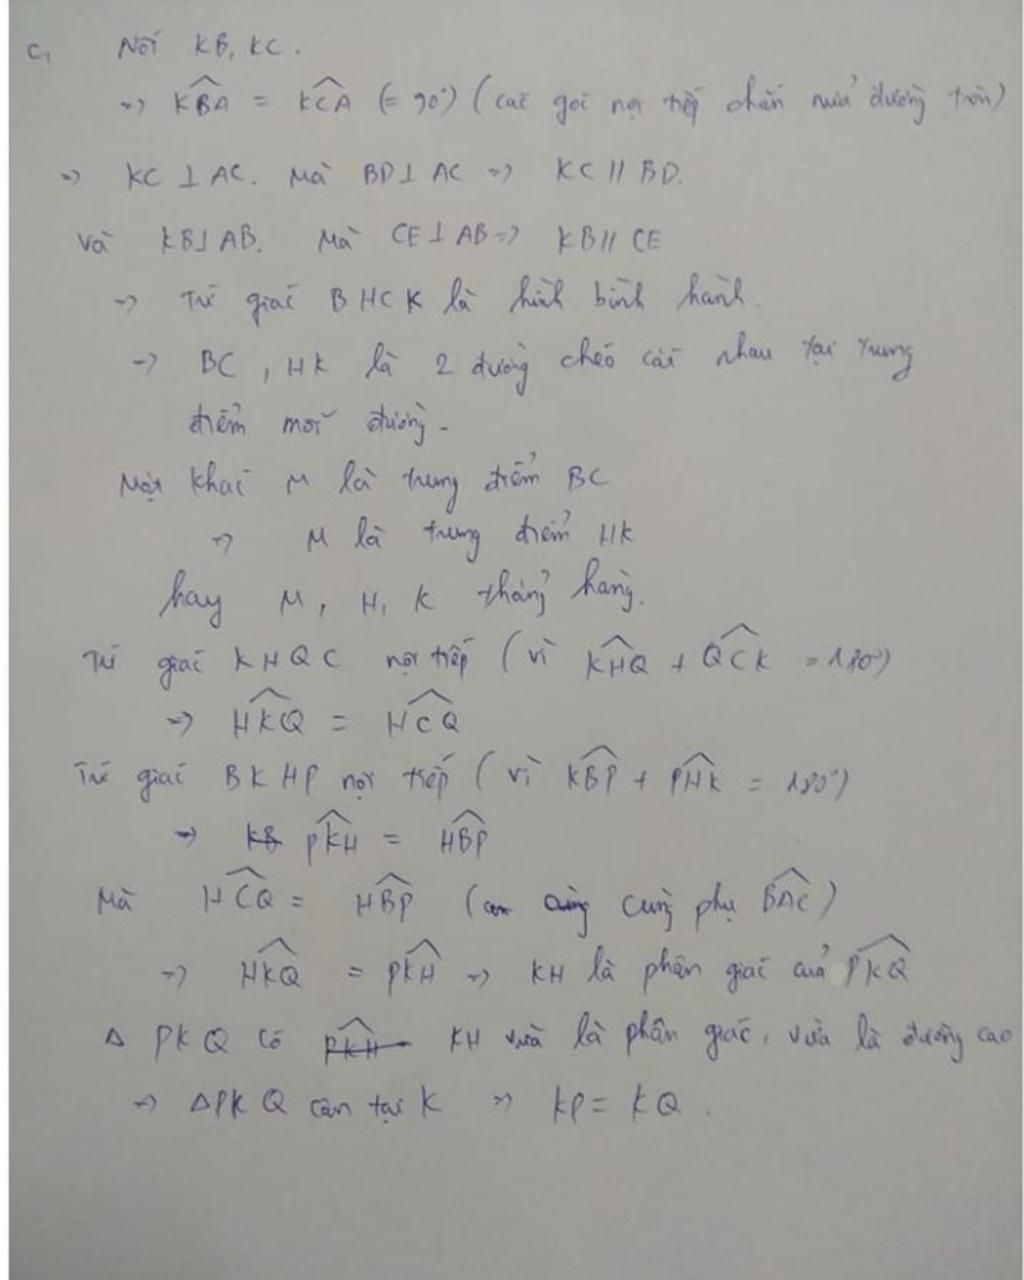 c, Nối KB, KC.
=> \widehat{KBA} = \widehat{KCA} (= 90°) (các góc nội tiếp chắn nửa đường tròn)
=> KC ⊥ AC. Mà BD ⊥ AC => KC // BD.
Và KB ⊥ AB. Mà CE ⊥ AB => KB // CE
=> Tứ giác BHCK là hình bình hành.
=> BC, HK là 2 đường chéo cắt nhau tại trung
điểm mỗi đường.
Mặt khác M là trung điểm BC
=> M là trung điểm HK
hay M, H, K thẳng hàng.
Tứ giác KHQC nội tiếp (vì \widehat{KHQ} + \widehat{QCK} = 180°)
=> \widehat{HKQ} = \widehat{HCQ}
Tứ giác BKHP nội tiếp (vì \widehat{KBP} + \widehat{PHK} = 180°)
=> \widehat{PKH} = \widehat{HBP}
Mà \widehat{HCQ} = \widehat{HBP} (cùng phụ \widehat{BAC})
=> \widehat{HKQ} = \widehat{PKH} => KH là phân giác của \widehat{PKQ}
Δ PKQ có KH vừa là phân giác, vừa là đường cao
=> ΔPKQ cân tại K => KP = KQ.